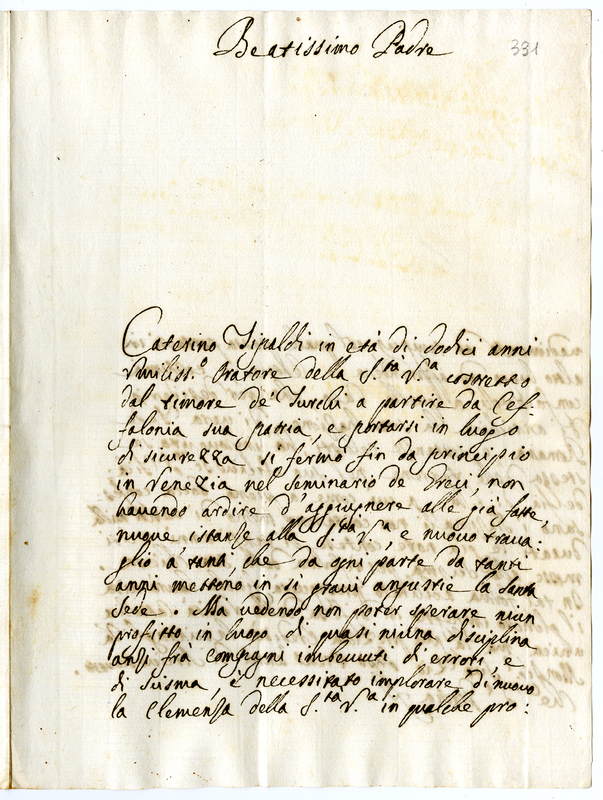 Beatissimo Padre
331
Caterino Tipaldi in età di dodici anni
Vmiliss.o Oratore della S.tà V.a costretto
dal timore de' Turchi a partire da Cef=
falonia sua patria, e portarsi in luogo
di sicurezza si fermò fin da principio
in Venezia nel seminario de Greci, non
havendo ardire d'aggiugnere alle già fatte,
nuove istanze alla S.tà V.a, e nuovo trava:
glio a' tanti, che da ogni parte da tanti
anni mettono in si gravi angustie la Santa
Sede. Ma vedendo non poter sperare niun
profitto in luogo di quasi niuna disciplina
anzi frà compagni imbevuti di errori, e
di Scisma, è necessitato implorare di nuovo
la Clemenza della S.tà V.a in qualche pro: